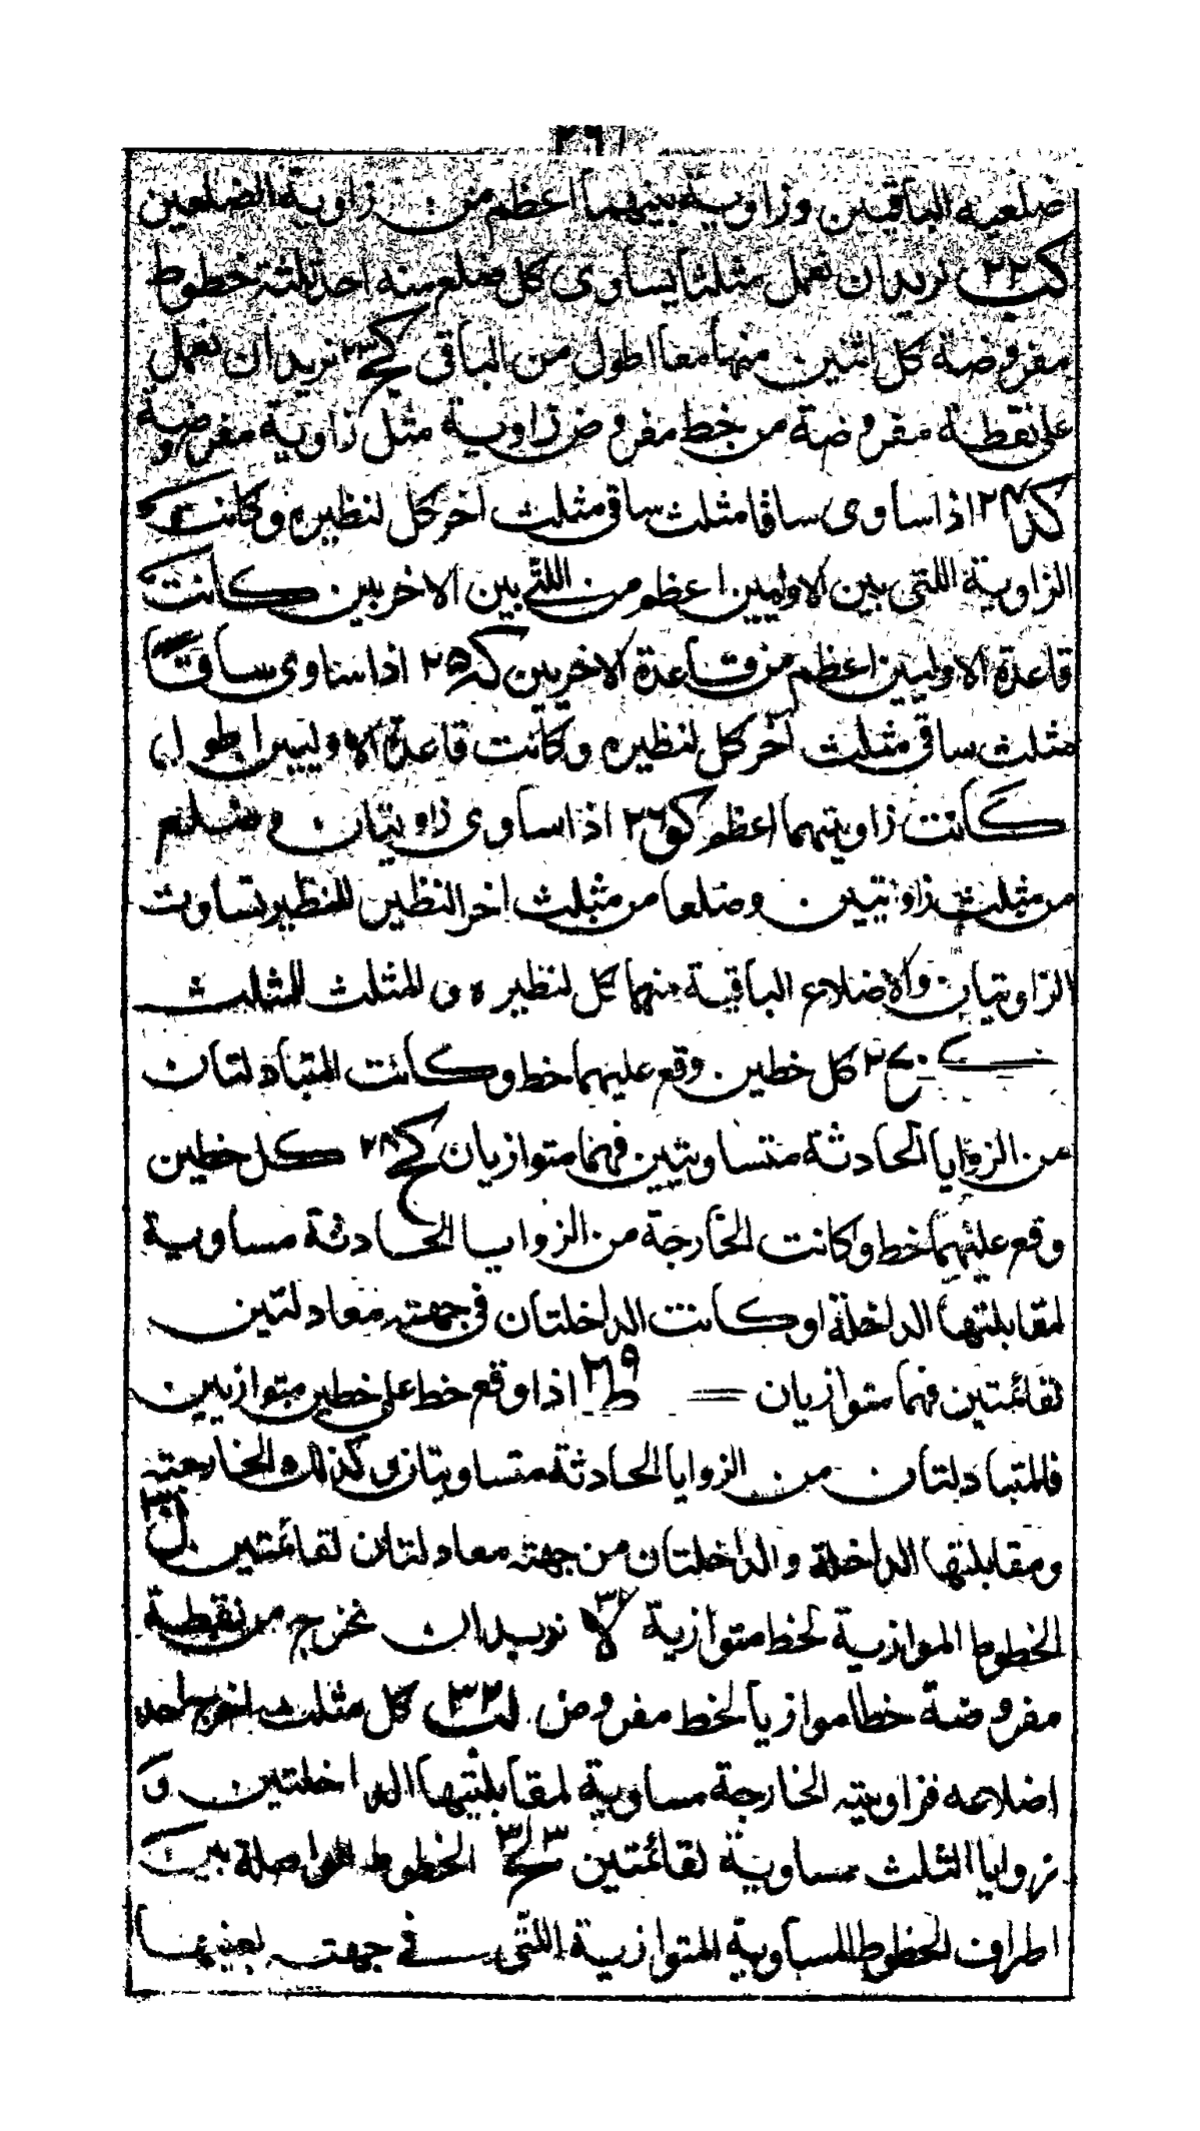 ٢٩١
ضلعيه الباقيين وزاوية بينهما اعظم من زاوية الضلعين
كب ٢٢ نريد ان نعمل مثلثا يساوى كل ضلع منه احد ثلثة خطوط
مفروضة كل اثنين منها معا اطول من الباقى كج ٢٣ نريد ان نعمل
على نقطة مفروضة من خط مفروض زاوية مثل زاوية مفروضة
كد ٢٤ اذا ساوى ساقا مثلث ساقى مثلث اخر كل لنظيره وكانت
الزاوية اللتى بين الاوليين اعظم من اللتى بين الاخريين كانت
قاعدة الاوليين اعظم من قاعدة الاخريين كه ٢٥ اذا ساوى ساقا
مثلث ساقى مثلث آخر كل لنظيره وكانت قاعدة الاوليين اطول
كانت زاويتهما اعظم كو ٢٦ اذا ساوى زاويتان و ضلع
من مثلث زاويتين وضلعا من مثلث اخر النظير للنظير تساوت
الزاويتان والاضلاع الباقية منهما كل لنظيره و المثلث للمثلث
٢٧ كل خطين وقع عليهما خط وكانت المتبادلتان
من الزوايا الحادثة متساويتين فهما متوازيان كح ٢٨ كل خطين
وقع عليهما خط وكانت الخارجة من الزوايا الحادثة مساوية
لمقابلتها الداخلة او كانت الداخلتان فى جهته معادلتين
لقائمتين فهما متوازيان = ط ٢٩ اذا وقع خط على خطين متوازيين
فالمتبادلتان من الزوايا الحادثة متساويتان و كذلك الخارجته
ومقابلتها الداخلة والداخلتان من جهته معادلتان لقائمتين ل ٣٠
الخطوط الموازية لخط متوازية لا ٣١ نريد ان نخرج من نقطة
مفروضة خطا موازيا لخط مفروض لب ٣٢ كل مثلث اخرج احد
اضلاعه فزاويته الخارجة مساوية لمقابلتيها الداخلتين و
زوايا المثلث مساوية لقائمتين لج ٣٣ الخطوط الواصلة بين
اطراف الخطوط المساوية المتوازية اللتى فى جهته بعينها